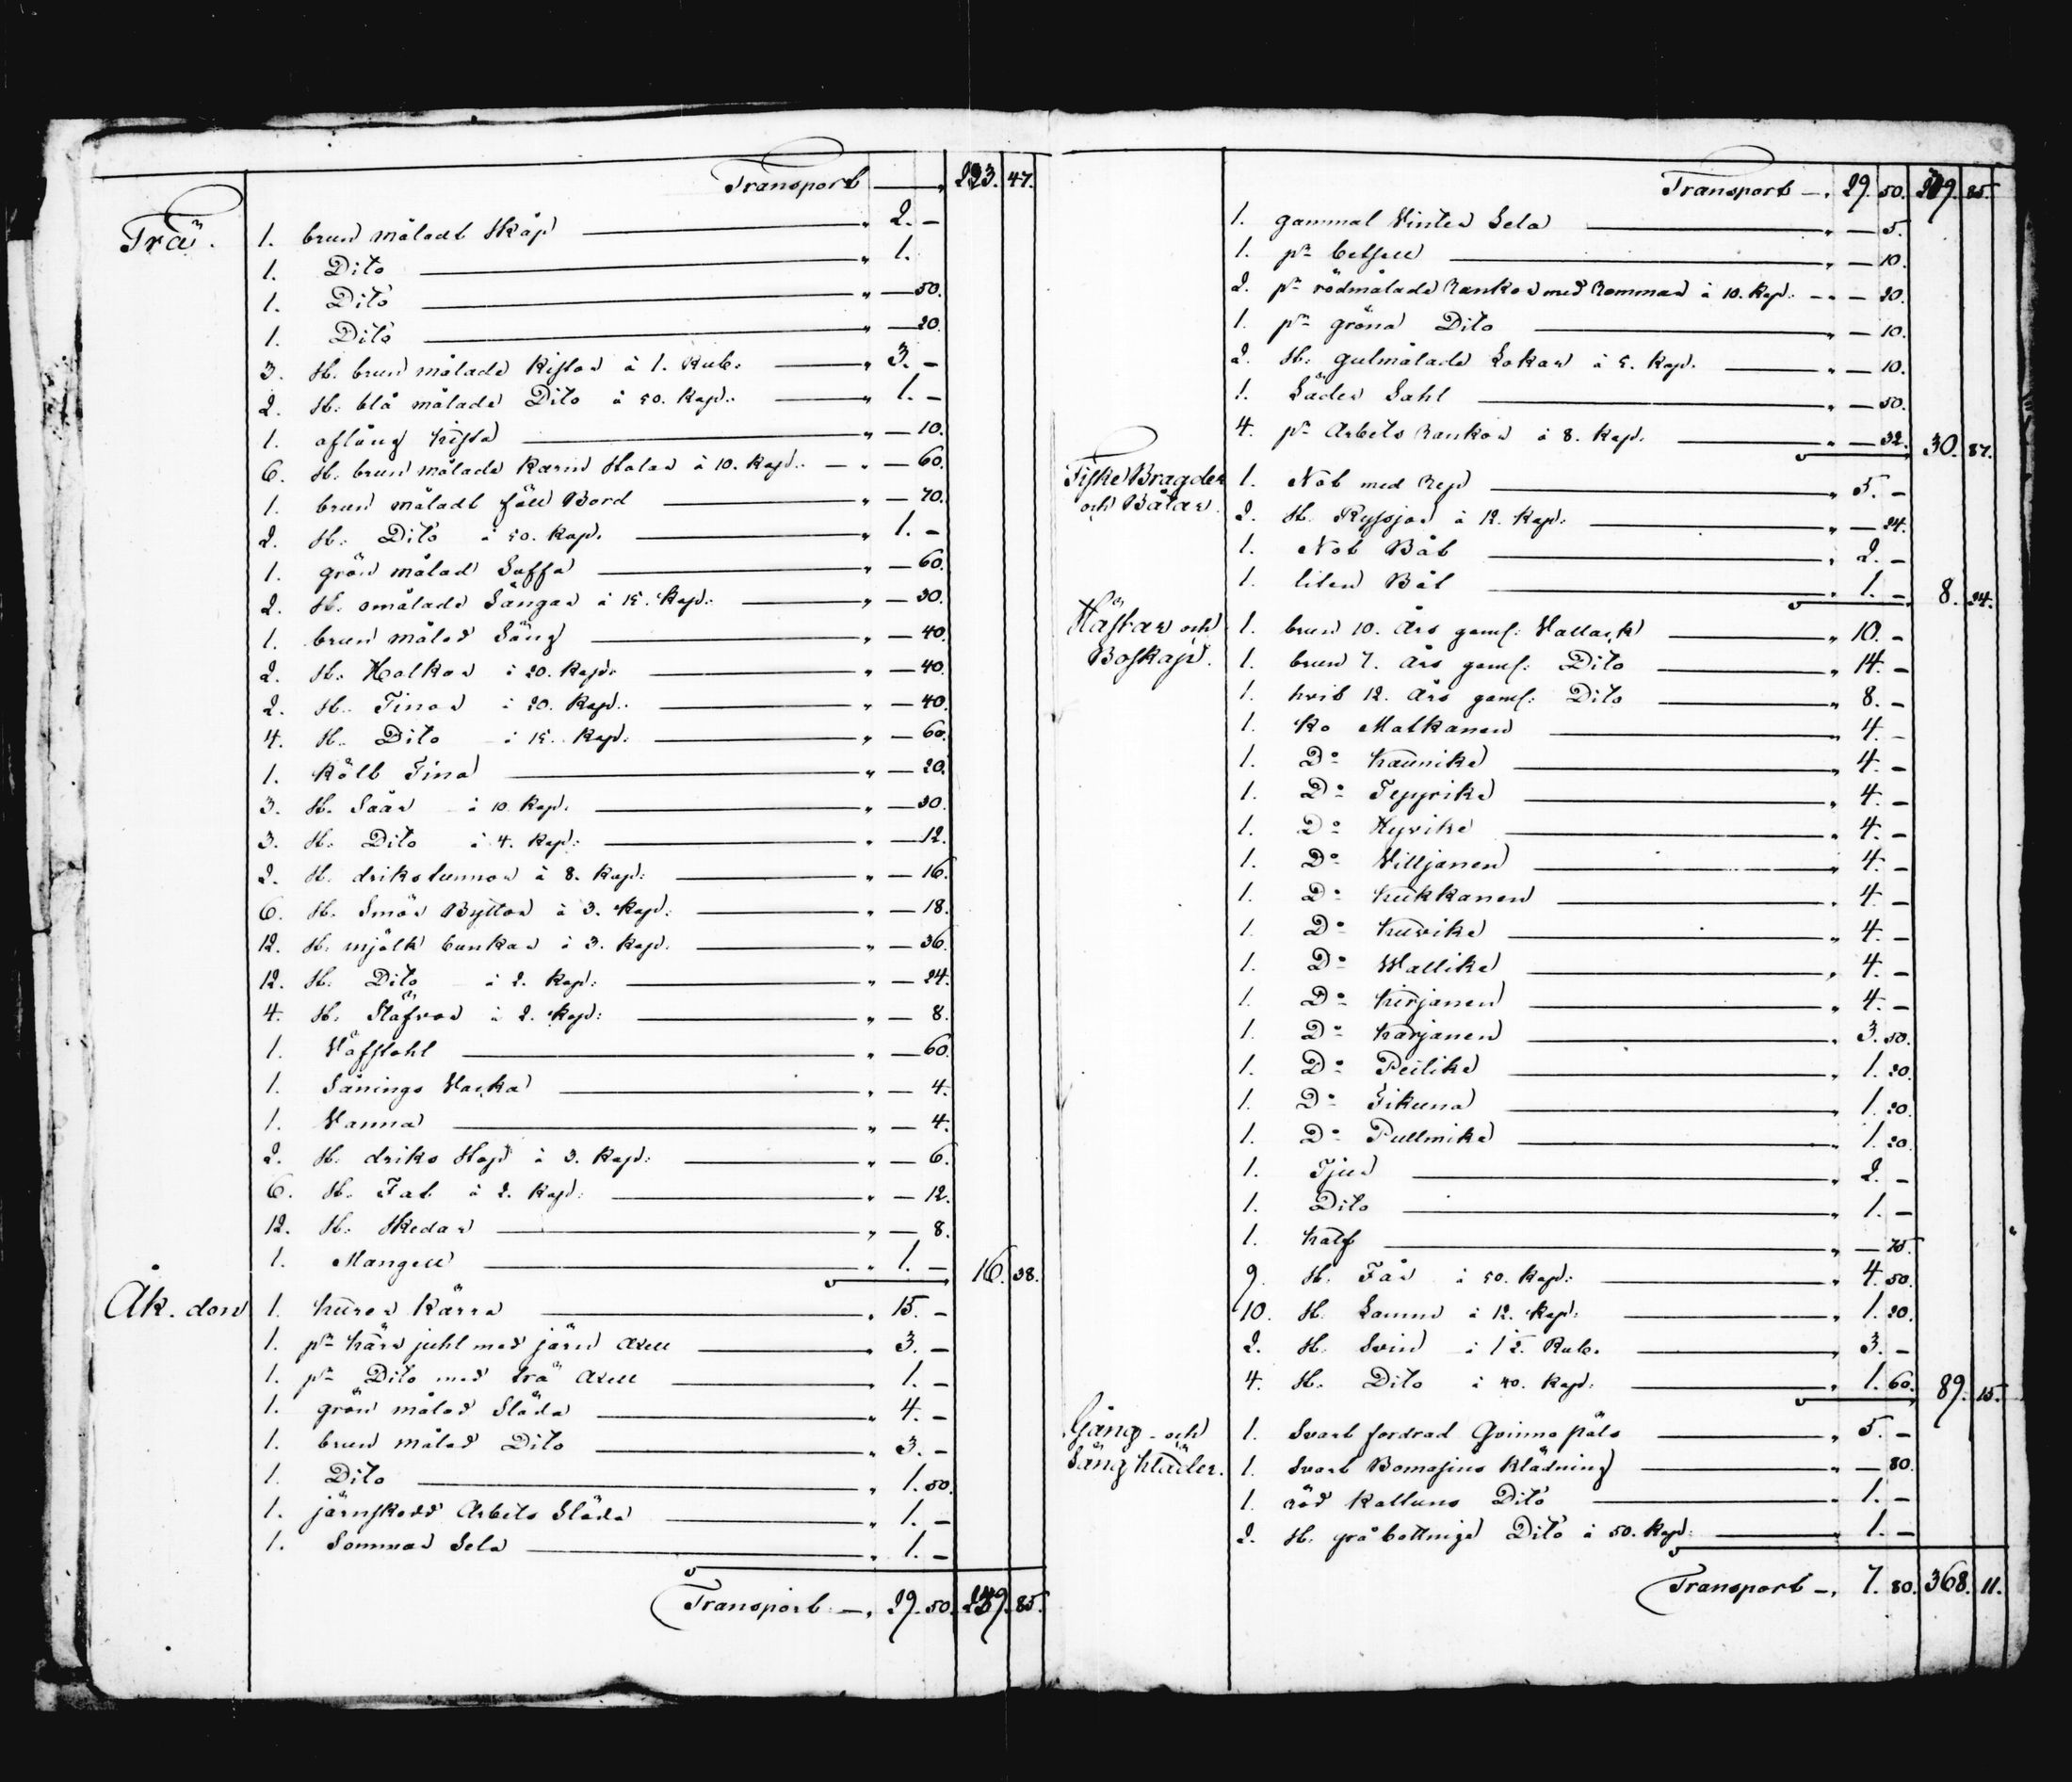 Transport —„ 223. 47.
Trä. 1. brun måladt Skåp „ 2. –
1. Dito „ 1.
1. Dito „ — 50.
1. Dito „ — 20.
3. St. brun målade Kistor à 1. Rub. „ 3. –
2. St. blå målade Dito à 50. Kop. „ 1. –
1. aflång kista „ — 10.
6. St. brun målade Karm Stolar à 10. Kop. „ — 60.
1. brun måladt fäll Bord „ — 70.
2. St. Dito à 50. Kop. „ 1. –
1. grön målad Soffa „ — 60.
2. St. omålade Sängar à 15. Kop. „ — 30.
1. brun målad Säng „ — 40.
2. St. Holkar à 20. Kop. „ — 40.
2. St. Tinor à 20. Kop. „ — 40.
4. St. Dito à 15. Kop. „ — 60.
1. kölb Tina „ — 20.
3. St. Såår à 10. Kop. „ — 30.
3. St. Dito à 4. Kop. „ — 12.
2. St. drikstunnor à 8. Kop. „ — 16.
6. St. Smör Byttor à 3. Kop. „ — 18.
12. St. mjölk bunkar à 3. Kop. „ — 36.
12. St. Dito à 2. Kop. „ — 24.
4. St. Stäfvor à 2. Kop. „ — 8.
1. Väfstohl „ — 60.
1. Sånings Vacka „ — 4.
1. Vanna „ — 4.
2. St. driks Stop à 3. Kop. „ — 6.
6. St. Fat à 2. Kop. „ — 12.
12. St. Skedar „ — 8.
1. Mangell „ 1. – 16. 38.
Åk-don 1. kuror Kärra „ 15. –
1. pr kärr juhl med järn axell „ 3. –
1. pr Dito med trä axell „ 1. –
1. grön målad Släda „ 4. –
1. brun målad Dito „ 3. –
1. Dito „ 1. 50.
1. järnskodd Arbets Släda „ 1. –
1. Sommar Sela „ 1. –
Transport —„ 29. 50. 239. 85.
Transport —„ 29. 50. 239. 85.
1. gammal Vinter Sela „ — 5.
1. pr betsell „ — 10.
2. pr rödmålade Rankor med Rommar à 10. Kop. „ — 20.
1. pr gröna Dito „ — 10.
2. St. gulmålade Lokar à 5. Kop. „ — 10.
1. Läder Sahl „ — 50.
4. pr Arbets Rankor à 8. Kop. „ — 32. 30. 87.
Fiske Bragder 1. Not med Rep „ 5. –
och Båtar. 2. St. Ryssjor à 12. Kop. „ — 24.
1. Not Båt „ 2. –
1. liten Båt „ 1. – 8. 24.
Hästar och 1. brun 10. Års gaml: Vallack „ 10. –
Boskap. 1. brun 7. års gaml: Dito „ 14. –
1. hvit 12. Års gaml: Dito „ 8. –
1. Ko Matkanen „ 4. –
1. Do kaunike „ 4. –
1. Do Tepyrike „ 4. –
1. Do Hyvike „ 4. –
1. Do Villjanen „ 4. –
1. Do kukkanen „ 4. –
1. Do kuvike „ 4. –
1. Do Wallike „ 4. –
1. Do kirjanen „ 4. –
1. Do karjanen „ 3. 50.
1. Do Peilike „ 1. 20.
1. Do Fikuna „ 1. 20.
1. Do Pullmike „ 1. 20.
1. Tjur „ 2. –
1. Dito „ 1. –
1. kalf „ — 75.
9. St. Får à 50. Kop. „ 4. 50.
10. St. Lamm à 12. Kop. „ 1. 20.
2. St. Svin à 1 1/2. Rub. „ 3. –
4. St. Dito à 40. Kop. „ 1. 60. 89. 15.
Gång- och 1. Svart fordrad Qvinno päls „ 5. –
Säng kläder. 1. Svart Bomasins Klädning „ — 80.
1. röd Kattuns Dito „ 1. –
2. St. grå bottnige Dito à 50. Kop. „ 1. –
Transport —„ 7. 80. 368. 11.